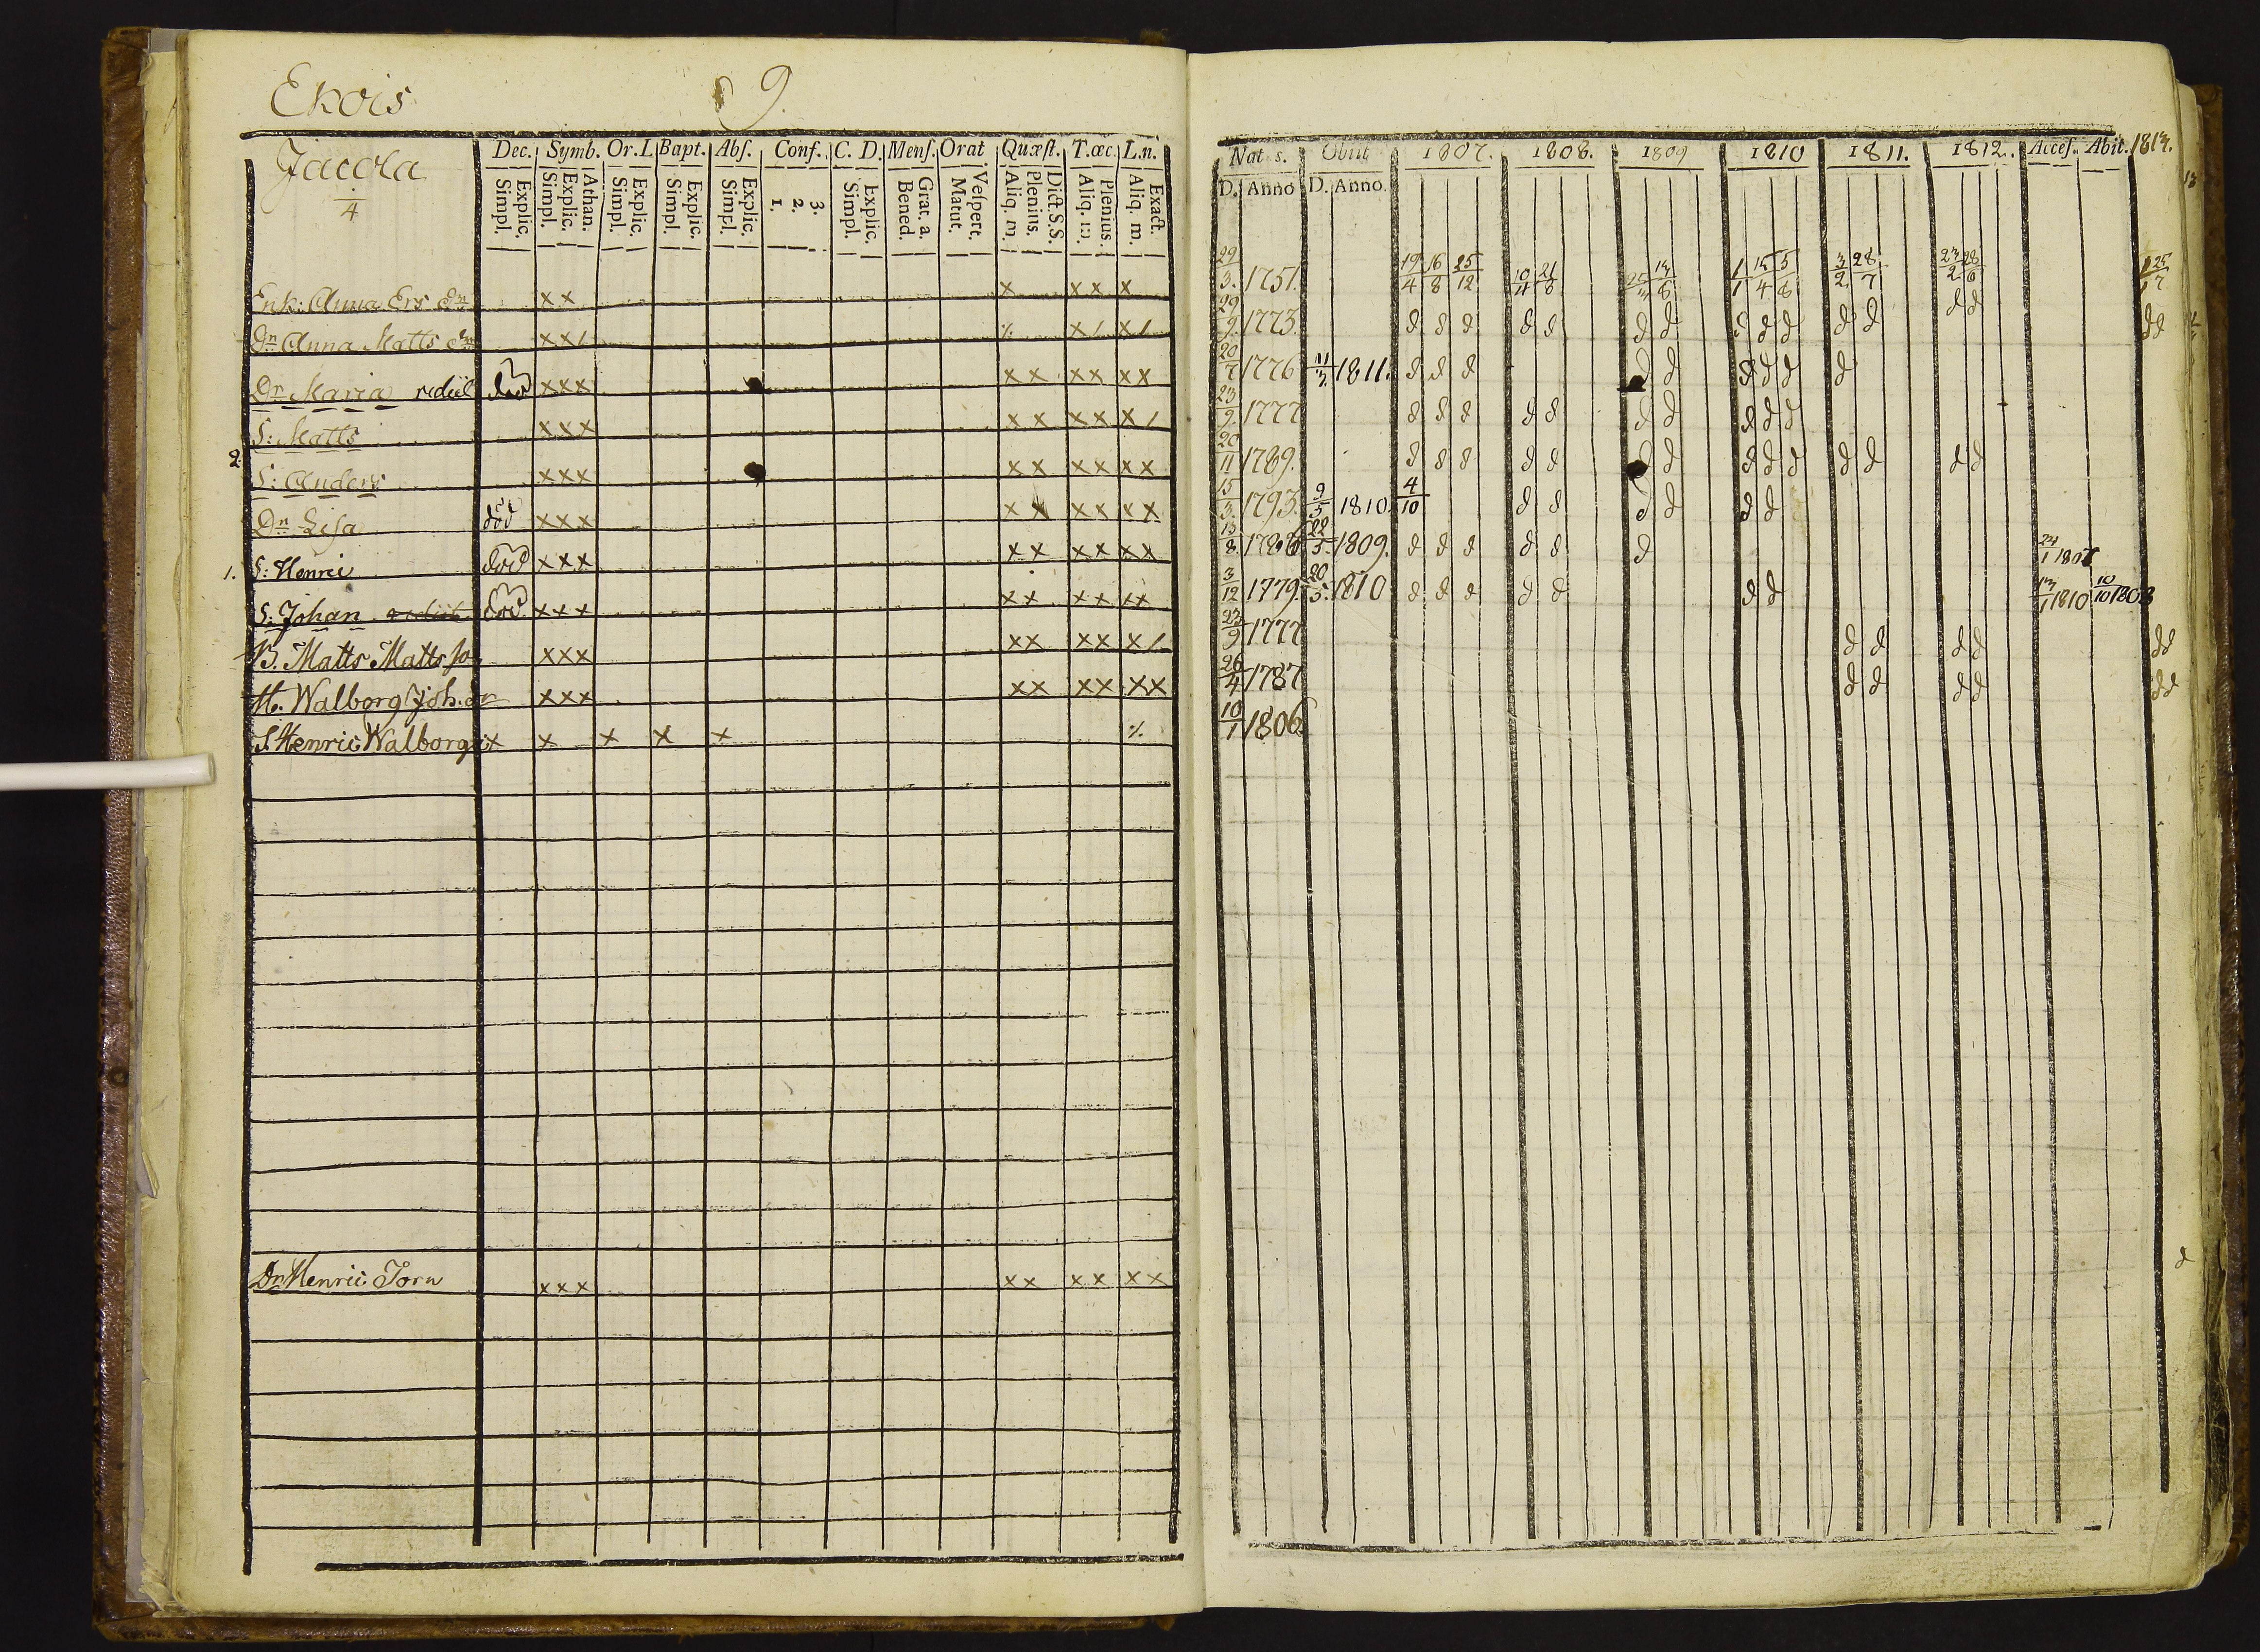 Ekois 9.
Jacola
4
Dec. Symb. Or. L Bapt. Abſ. Conf. C. D. Menſ. Orat Quæſt. T. œc. L. n.
Explic. Simpl. Athan. Explic. Simpl. Explic. Simpl. Explic. Simpl. Explic. Simpl. 3. 2. 1. Explic. Simpl. Grat. a. Bened. Veſpert. Matut. Dict. S. S. Plenius. Aliq. m. Plenius. Aliq. m. Exact. Aliq. m.
Enk: Anna Ers Dn x x x x x x
Dn Anna Matts Dn x x / ./. x / x /
Dn Maria rediit död x x x x x x x x x
S: Matts x x x x x x x x /
2. S: Anders x x x x x x x x x
Dn Lisa död x x x x x x x x x
1. S: Henric död x x x x x x x x x
S. Johan rediit död x x x x x x x x x
B. Matts Matts so x x x x x x x x /
H. Walborg Joh. dr x x x x x x x x x
S. Henric Walborgs x x x x x ./.
Dn Henric Jorn x x x x x x x x x
Nat. s. Obiit 1807. 1808. 1809 1810 1811. 1812. Acceſ. Abit. 1813.
D. Anno D. Anno.
29/3. 1751. 19/4 16/8 25/12 10/4 21/8 1/1 15/4 5/8 3/2 28/7 23/2 28/6 25/7
29/9. 1773. d d d d d d d d d d d d d d d d
20/7 1776 11/3. 1811. d d d d d d d d d
23/9. 1777 d d d d d d d d d d
20/11 1789. d d d d d d d d d d d d d d
15/3. 1793. 9/5 1810. 4/10 d d d d d d
13/8. 1786 22/5. 1809. d d d d d d 24/1 1808
3/12 1779. 20/5. 1810 d d d d d d d 13/1 1810 10/10 1808
23/9 1777 d d d d d d
26/4 1787 d d d d d d
10/1 1806.
d